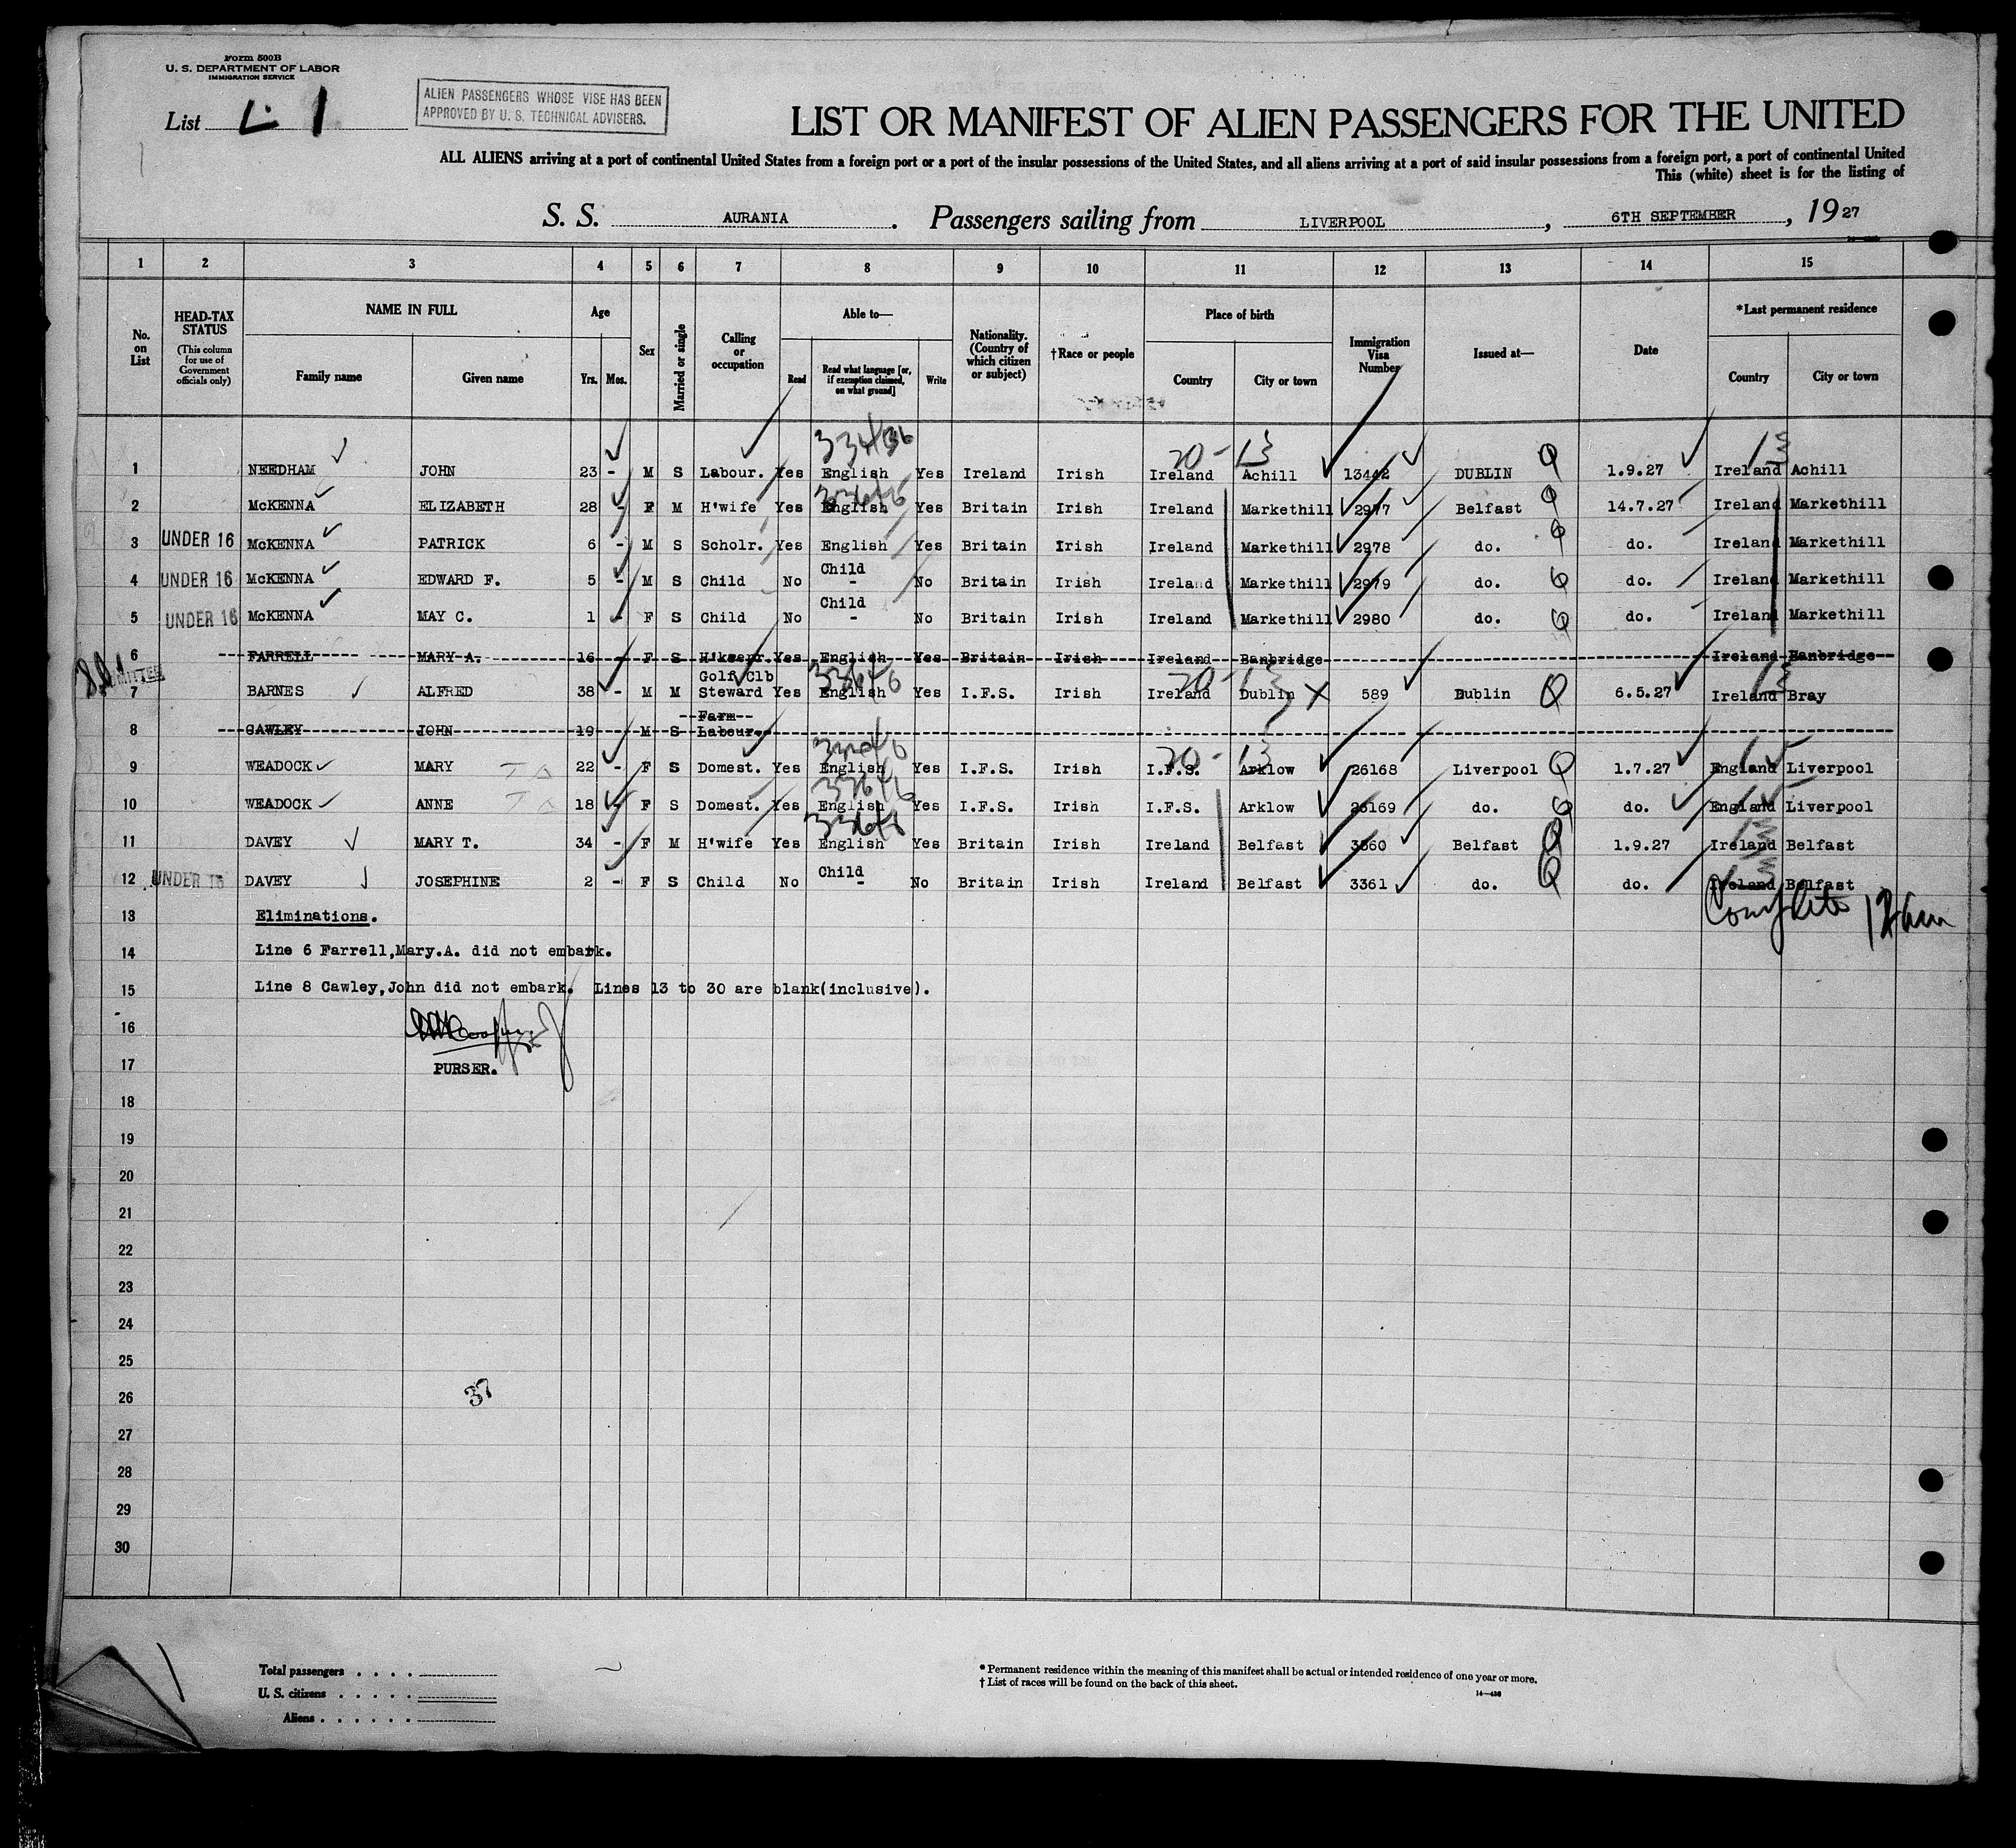 Form 500B
U. S. DEPARTMENT OF LABOR
IMMIGRATION SERVICE
List L 1
ALIEN PASSENGERS WHOSE VISE HAS BEEN
APPROVED BY U. S. TECHNICAL ADVISERS.
LIST OR MANIFEST OF ALIEN PASSENGERS FOR THE UNITED
ALL ALIENS arriving at a port of continental United States from a foreign port or a port of the insular possessions of the United States, and all aliens arriving at a port of said insular possessions from a foreign port, a port of continental United
This (white) sheet is for the listing of
S. S. AURANIA. Passengers sailing from LIVERPOOL, 6TH SEPTEMBER, 1927
1 2 3 4 5 6 7 8 9 10 11 12 13 14 15
No. on List
HEAD-TAX STATUS (This column for use of Government officials only)
NAME IN FULL Family name Given name
Age Yrs. Mos.
Sex
Married or single
Calling or occupation
Able to— Read Read what language [or, if exemption claimed, on what ground] Write
Nationality. (Country of which citizen or subject)
†Race or people
Place of birth Country City or town
Immigration Visa Number
Issued at—
Date
*Last permanent residence Country City or town
1 NEEDHAM JOHN 23 - M S Labour. Yes English Yes Ireland Irish Ireland Achill 13442 DUBLIN 1.9.27 Ireland Achill
2 McKENNA ELIZABETH 28 - F M H'wife Yes English Yes Britain Irish Ireland Markethill 2977 Belfast 14.7.27 Ireland Markethill
3 UNDER 16 McKENNA PATRICK 6 - M S Scholr. Yes English Yes Britain Irish Ireland Markethill 2978 do. do. Ireland Markethill
4 UNDER 16 McKENNA EDWARD F. 5 - M S Child No Child - No Britain Irish Ireland Markethill 2979 do. do. Ireland Markethill
5 UNDER 16 McKENNA MAY C. 1 - F S Child No Child - No Britain Irish Ireland Markethill 2980 do. do. Ireland Markethill
6 FARRELL MARY A. 16 - F S H'keepr. Yes English Yes Britain Irish Ireland Banbridge Ireland Banbridge
7 BARNES ALFRED 38 - M M Golf Clb Steward Yes English Yes I.F.S. Irish Ireland Dublin X 589 Dublin 6.5.27 Ireland Bray
8 CAWLEY JOHN 19 M S Farm Labour.
9 WEADOCK MARY 22 - F S Domest. Yes English Yes I.F.S. Irish I.F.S. Arklow 26168 Liverpool 1.7.27 England Liverpool
10 WEADOCK ANNE 18 - F S Domest. Yes English Yes I.F.S. Irish I.F.S. Arklow 26169 do. do. England Liverpool
11 DAVEY MARY T. 34 - F M H'wife Yes English Yes Britain Irish Ireland Belfast 3360 Belfast 1.9.27 Ireland Belfast
12 UNDER 16 DAVEY JOSEPHINE 2 - F S Child No Child - No Britain Irish Ireland Belfast 3361 do. do. Ireland Belfast
13 Eliminations. Complete
14 Line 6 Farrell,Mary.A. did not embark.
15 Line 8 Cawley,John did not embark. Lines 13 to 30 are blank(inclusive).
16
17 PURSER.
18
19
20
21
22
23
24
25
26 37
27
28
29
30
Total passengers . . . .
U. S. citizens . . . . .
Aliens . . . . . .
* Permanent residence within the meaning of this manifest shall be actual or intended residence of one year or more.
† List of races will be found on the back of this sheet.
14—436